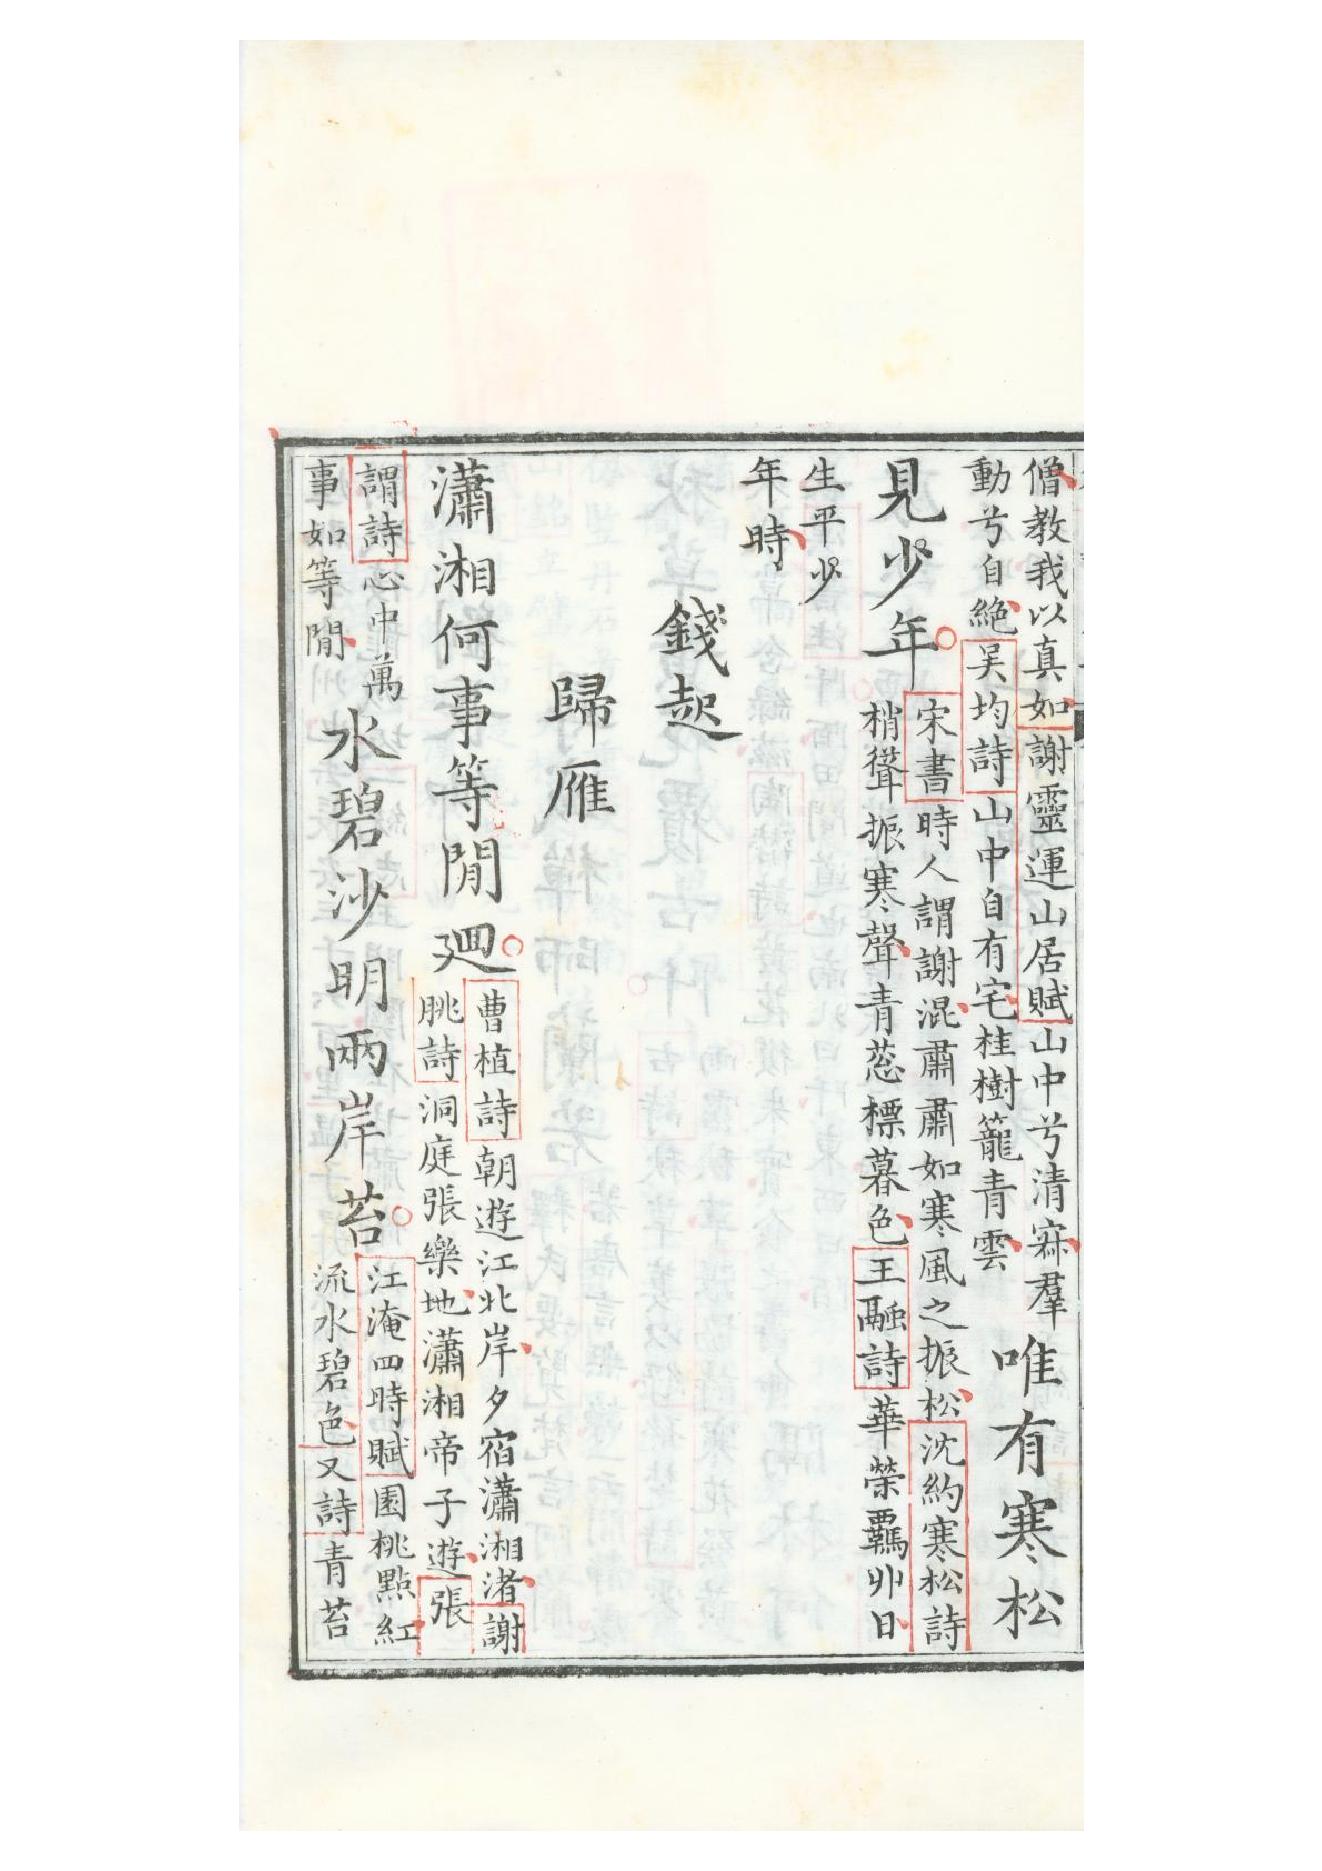 僧教我以真如謝靈運山居賦山中兮清寂羣
動兮自絶吴均詩山中自有宅桂樹籠青雲
唯有寒松
見少年
宋書時人謂謝混肅肅如寒風之振松沈約寒松詩
梢聳振寒聲青葱標暮色王融詩華榮羈丱日
生平少
年時
錢起
歸雁
瀟湘何事等閒廻
曹植詩朝遊江北岸夕宿瀟湘渚謝
朓詩洞庭張樂地瀟湘帝子遊張
謂詩心中萬
事如等閒
水碧沙明兩岸苔
江淹四時賦園桃點紅
流水碧色又詩青苔